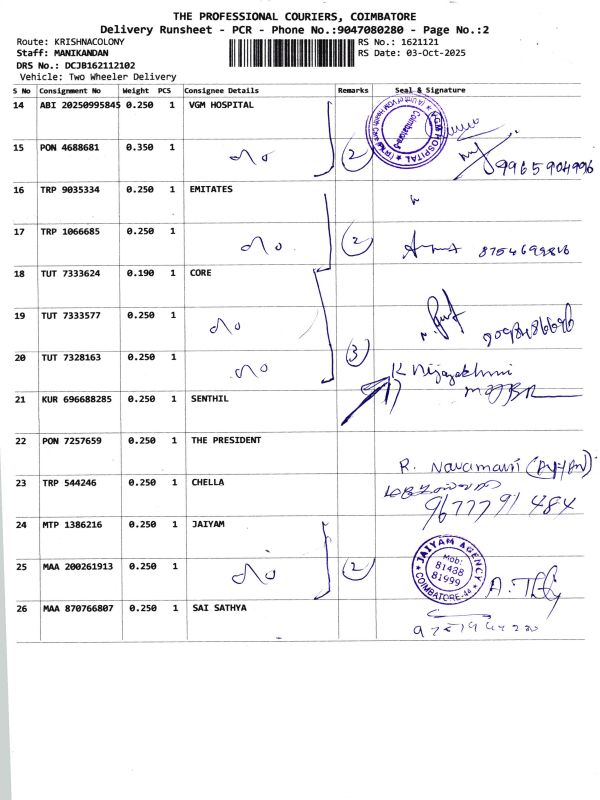 THE PROFESSIONAL COURIERS, COIMBATORE
Delivery Runsheet - PCR - Phone No.:9047080280 - Page No.:2
Route: KRISHNACOLONY RS No.: 1621121
Staff: MANIKANDAN RS Date: 03-Oct-2025
DRS No.: DCJB162112102
Vehicle: Two Wheeler Delivery
S No Consignment No Weight PCS Consignee Details Remarks Seal & Signature
14 ABI 20250995845 0.250 1 VGM HOSPITAL
VGM HOSPITAL
Coimbatore-5
15 PON 4688681 0.350 1 2
9965904996
16 TRP 9035334 0.250 1 EMITATES
17 TRP 1066685 0.250 1 2
18 TUT 7333624 0.190 1 CORE
19 TUT 7333577 0.250 1
20 TUT 7328163 0.250 1 3
21 KUR 696688285 0.250 1 SENTHIL
22 PON 7257659 0.250 1 THE PRESIDENT
R. Navamani
23 TRP 544246 0.250 1 CHELLA
9677791484
24 MTP 1386216 0.250 1 JAIYAM
JAIYAM AGENCY
Mob:
81488
81999
COIMBATORE-44
25 MAA 200261913 0.250 1 2
26 MAA 870766807 0.250 1 SAI SATHYA